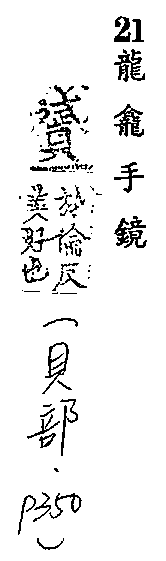 21 龍龕手鏡
贇
於倫反
美好也
（貝部．p350）